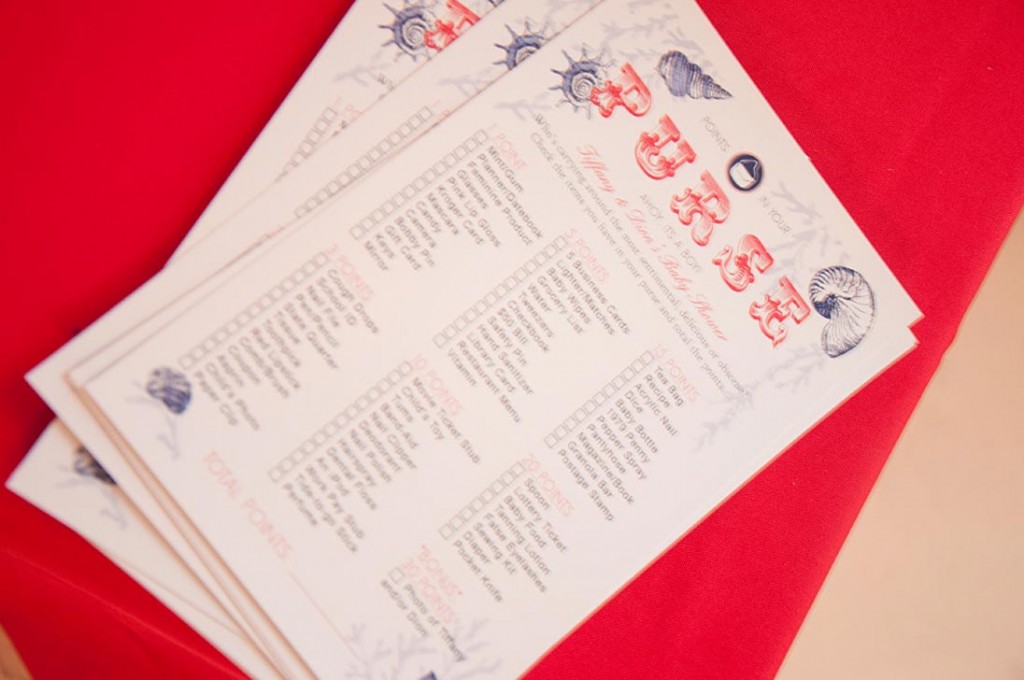 POINTS
IN YOUR
PURSE
AHOY, IT'S A BOY!
Tiffany & Dion's Baby Shower
Who's carrying around the most sentimental, delicious or obscure
Check the items you have in your purse and total the points.
1 POINT
Mint/Gum
Planner/Datebook
Feminine Product
Glasses
Pink Lip Gloss
Kroger Card
Mascara
Candy
Camera
Bobby Pin
Gift Card
Keys
Mirror
2 POINTS
Cough Drops
School ID
Nail File
Pen/Pencil
State Quarter
Toothpick
Coupon
Aspirin
Child's Photo
Paper Clip
5 POINTS
5 Business Cards
Lighter/Matches
Baby Wipes
Grocery List
Water
Tweezers
Checkbook
$50 Bill
Safety Pin
Hand Sanitizer
Library Card
Restaurant Menu
Vitamin
10 POINTS
Movie Ticket Stub
Child's Toy
Tums
Band-Aid
Nail Clipper
Deodorant
Nail Polish
Hairspray
Dental Floss
An iPod
Work Pay Stub
Tide-to-go Stick
Perfume
15 POINTS
Tea Bag
Recipe
Acrylic Nail
Dice
Baby Bottle
1979 Penny
Pepper Spray
Pantyhose
Magazine/Book
Granola Bar
Postage Stamp
20 POINTS
Spoon
Lottery Ticket
Baby Food
Tanning Lotion
False Eyelashes
Sewing Kit
Diaper
Pocket Knife
*BONUS*
30 POINTS
Photo of Tiffany
and/or Dion
TOTAL POINTS: